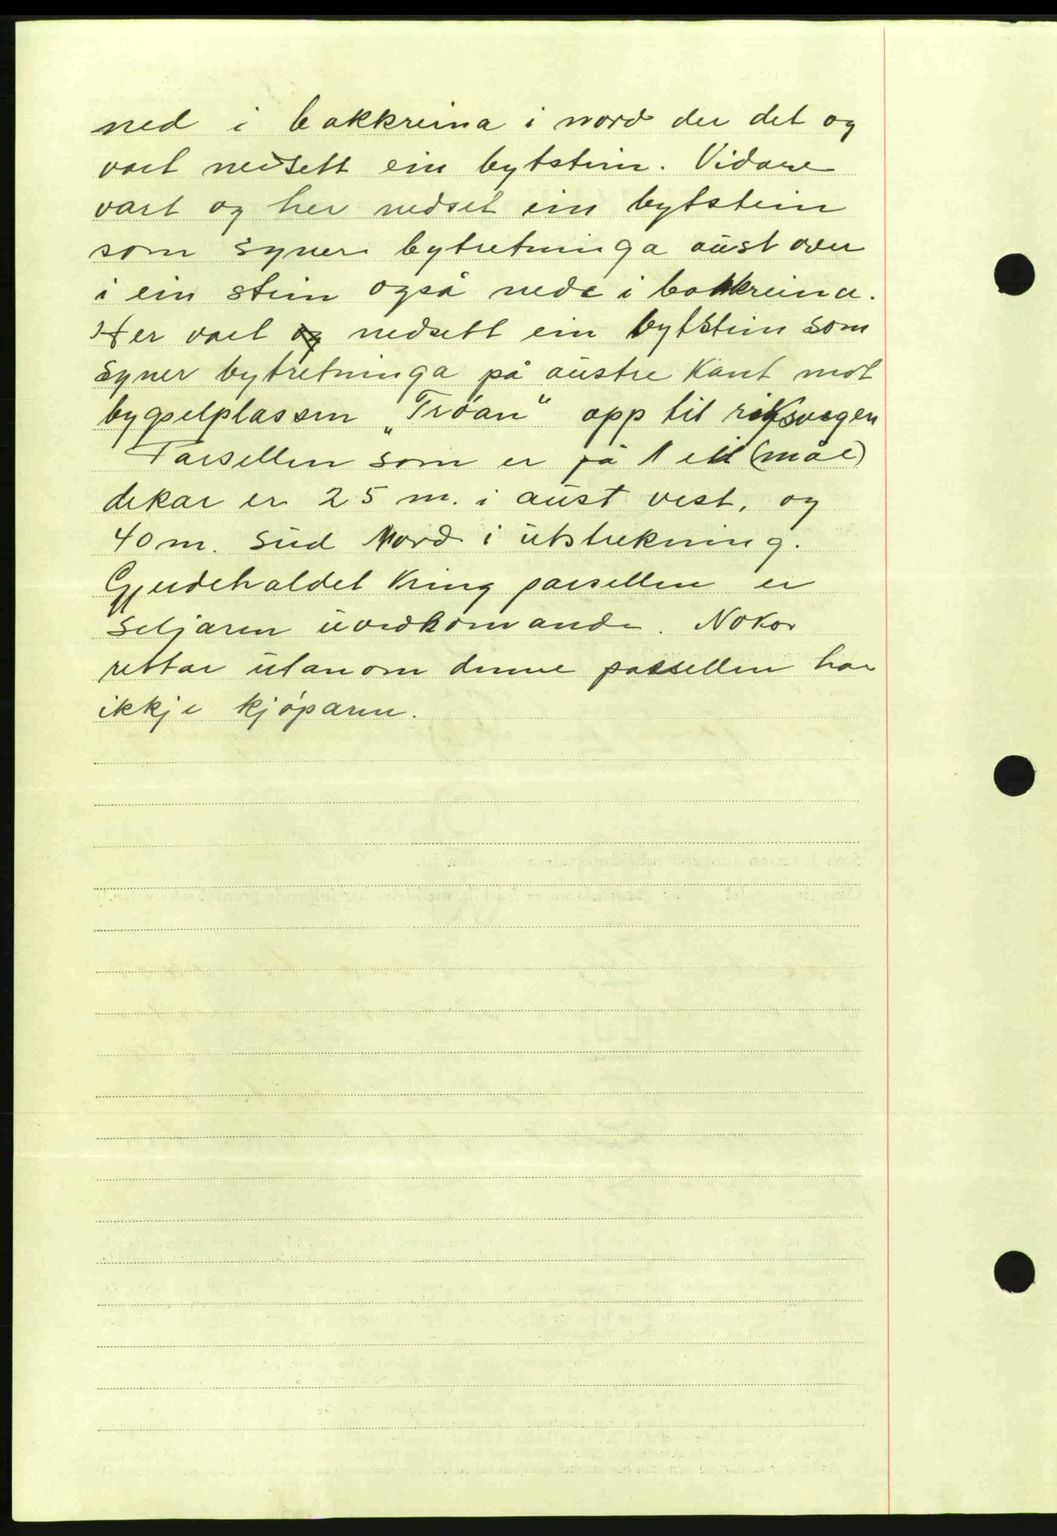 ned i bakkreina i nord der det og
vart nedsett ein bytstein. Vidare
vart og her nedset ein bytstein
som syner bytretninga aust over
i ein stein også nede i bakkreina.
Her vart og nedsett ein bytstein som
syner bytretninga på austre kant mot
bygselplassen „Trøan“ opp til riksvegen
Parsellen som er på 1 eit (mål)
dekar er 25 m. i aust vest, og
40 m. sud Nord i utstrekning.
Gjerdehaldet kring parsellen er
seljaren uvedkomande. Nokor
rettar utanom denne parsellen har
ikkje kjøparen.